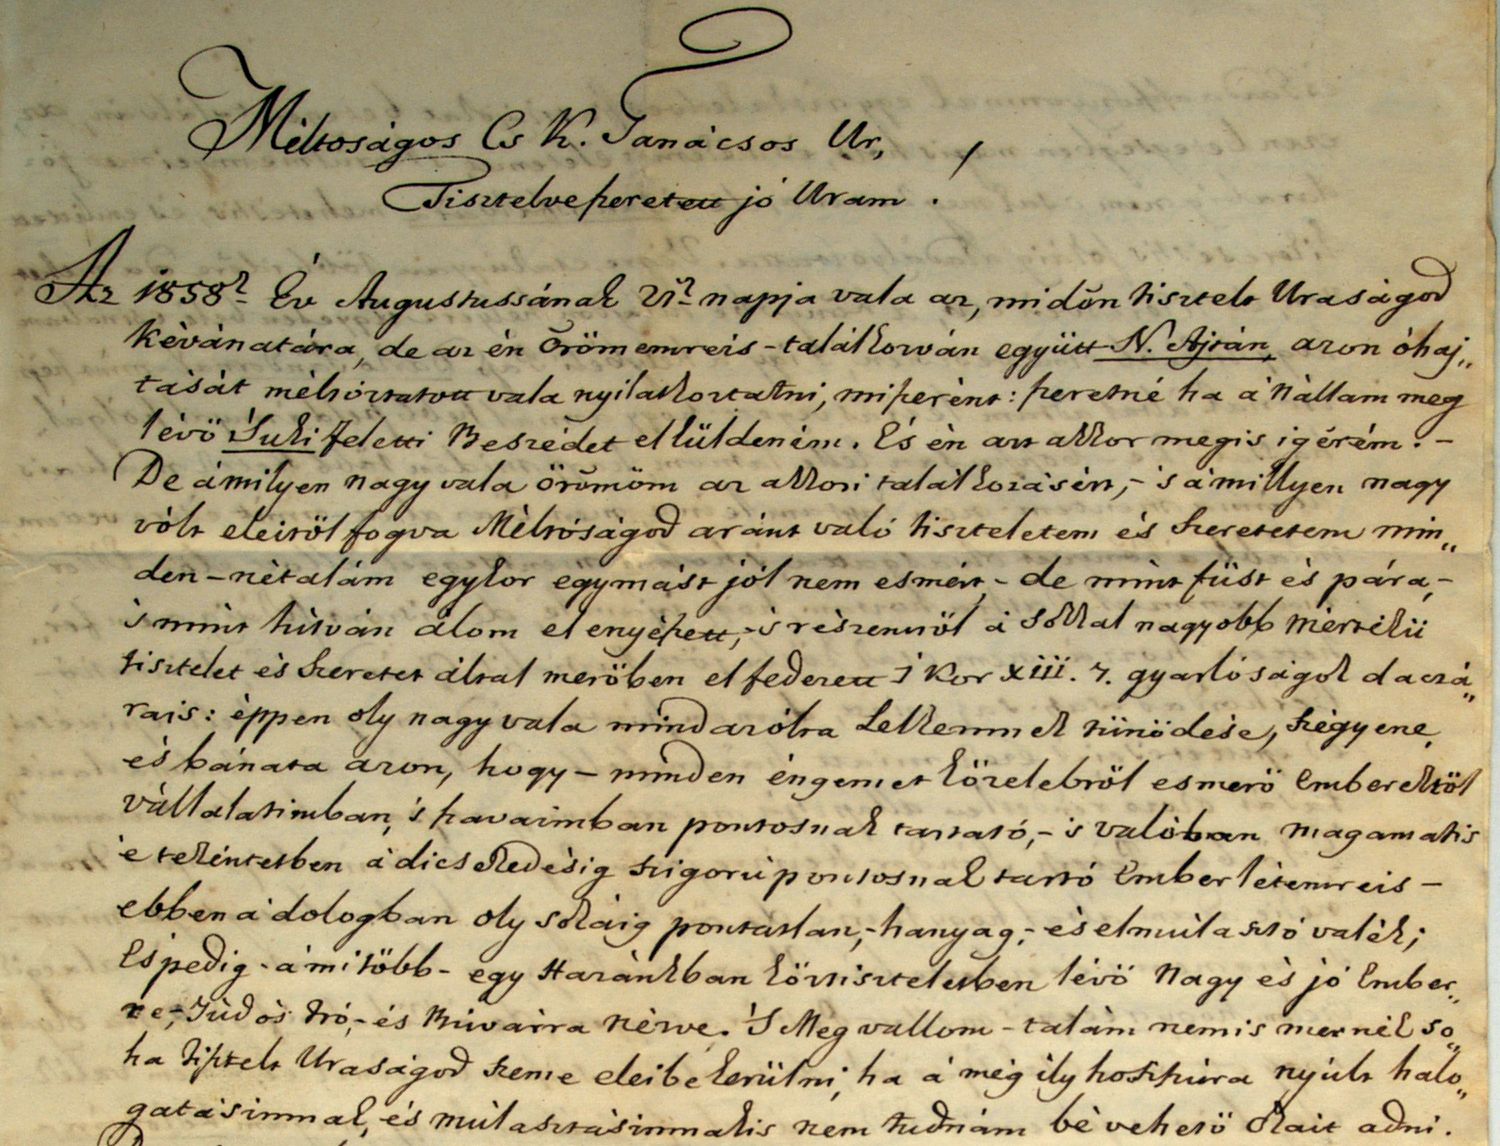 Méltoságos Cs K. Tanácsos Ur,
Tisztelve szeretett jó Uram!
Az 1858ᵏ Év Augustussának 21ᵏ napja vala az, midőn tisztelt Uraságod
kévánatára, de az én örömemreis - találkozván együtt N. Ajtán, azon óhaj„
tását méltóztatott vala nyilatkoztatni, miszerént: szeretné ha á nállam meg
lévö Suki feletti Beszédet elküldeném. És én azt akkor megis igérém. -
De ámilyen nagy vala örömöm az akkori találkozásért, - 's ámillyen nagy
vólt eleitöl fogva Méltóságod aránt való tiszteletem és szeretetem min„
den - nétalám egykor egymást jól nem esmért, - de mint füst és pára, -
's mint hitván álom el enyészett, - 's részemröl á sokkal nagyobb mértékü
tisztelet és szeretet által meröben el fedezett 1 Kor XIII. 7. gyarlóságok daczá„
rais: éppen oly nagy vala mind azólta Lelkemnek tünödése, szégyene,
és bánata azon, hogy - minden éngemet közelebröl esmerö Emberektöl
vállalatimban, 's szavaimban pontosnak tartató, - 's valóban magamatis
'e tekéntetben á dicsekedésig szigorú pontosnak tartó Ember létemreis -
ebben á dologban oly sokáig pontatlan, - hanyag, - és elmúlasztó valék;
És pedig - á mi több - egy Hazánkban köztiszteletben lévö Nagy és jó Ember„
re, - Túdós Iró, - és Búvárra nézve. 'S Meg vallom - talám nemis mernék so„
ha tisztelt Uraságod szeme eleibe kerülni, ha á még ily hosszúra nyúlt halo„
gatásimnak, és múlasztásimnakis nem tudnám bé vehetö okait adni.